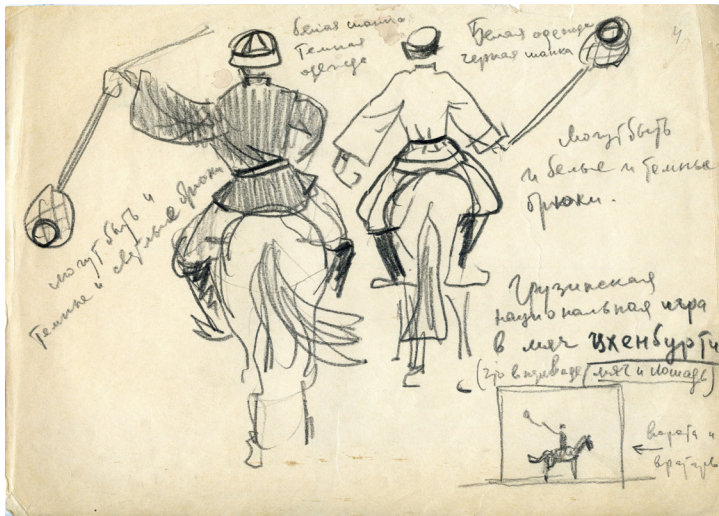 белая шапка
темная
одежда
Белая одежда
черная шапка
4
могут быть
и белые и темные
брюки.
могут быть и
темные и светлые брюки
Грузинская
национальная игра
в мяч цхенбурти
(в переводе мяч и лошадь)
ворота и
вратарь